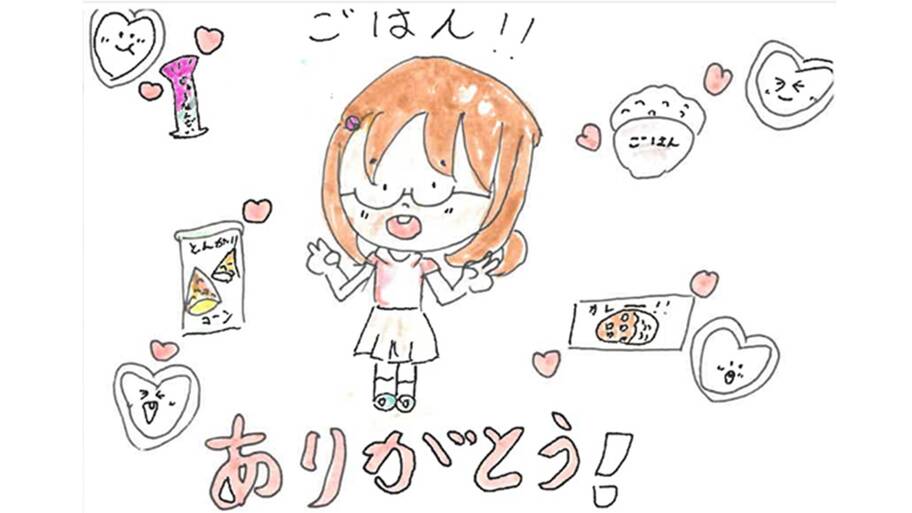 ごはん!!
ごはん
とんがり
コーン
カレー!!
ありがとう!